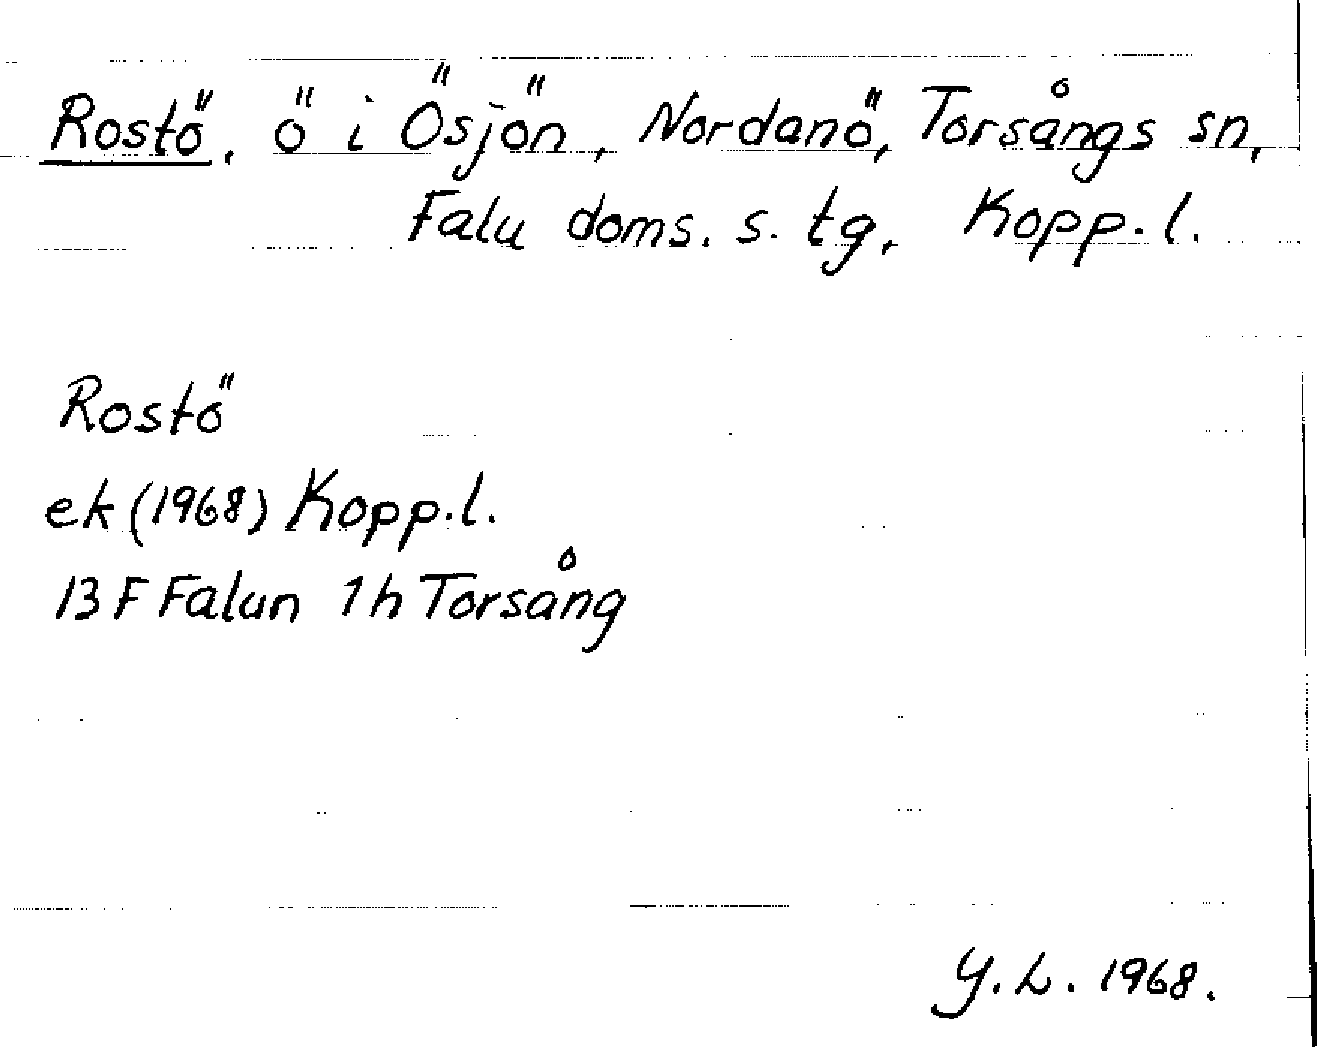 Rostö, ö i Ösjön, Nordanö, Torsångs sn,
Falu doms. s. tg, Kopp. l.
Rostö
ek (1968) Kopp.l.
13 F Falun 1h Torsång
Y. L. 1968.